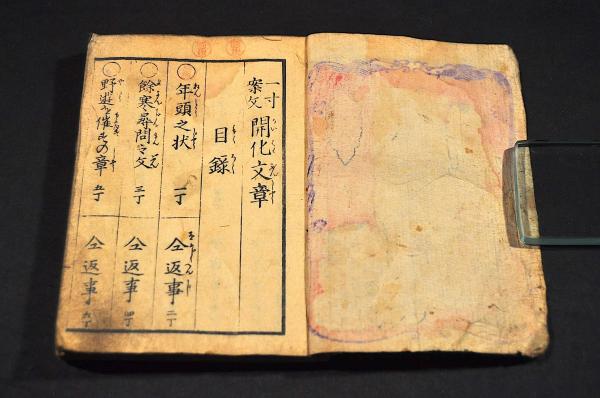 一寸案文 開化文章
目録
年頭之状 一丁
仝返事 二丁
餘寒尋問之文 三丁
仝返事 四丁
野遊を催すの章 五丁
仝返事 六丁